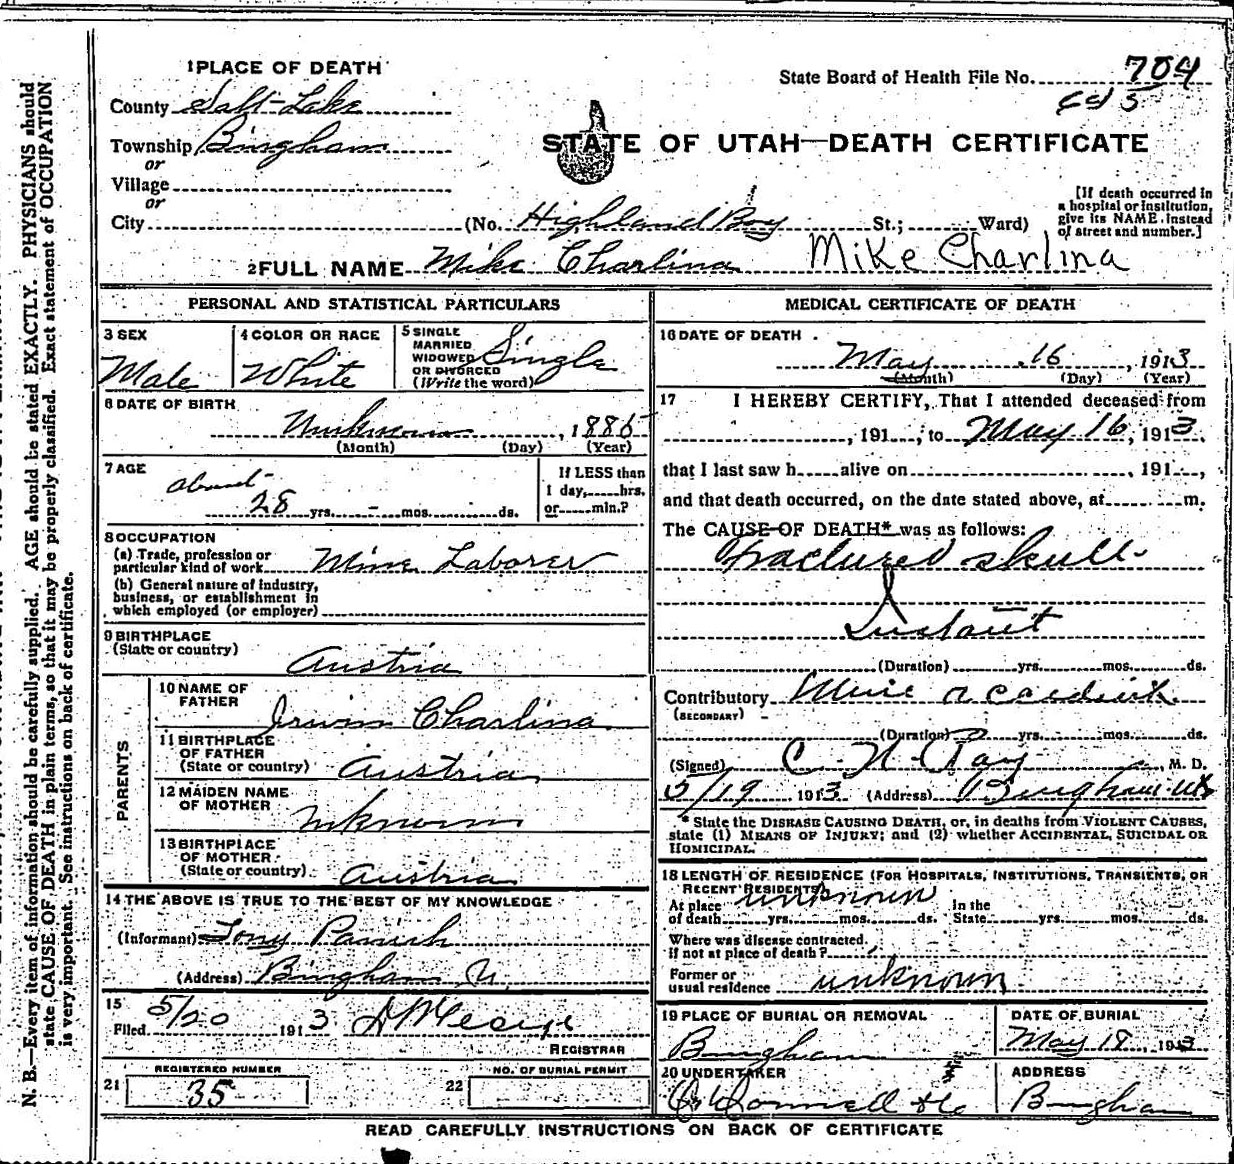 1 PLACE OF DEATH
State Board of Health File No. 704
County Salt Lake
Township Bingham
or
Village
or
City
STATE OF UTAH—DEATH CERTIFICATE
(No. Highland Boy St.; Ward)
[If death occurred in a hospital or institution, give its NAME instead of street and number.]
2 FULL NAME Mike Charlina Mike Charlina
PERSONAL AND STATISTICAL PARTICULARS
3 SEX
Male
4 COLOR OR RACE
White
5 SINGLE
MARRIED
WIDOWED
OR DIVORCED
(Write the word)
Single
6 DATE OF BIRTH
Unknown, 1885
(Month) (Day) (Year)
7 AGE
about
28 yrs. - mos. ds.
If LESS than
1 day, hrs.
or min.?
8 OCCUPATION
(a) Trade, profession or
particular kind of work Mine Laborer
(b) General nature of industry,
business, or establishment in
which employed (or employer)
9 BIRTHPLACE
(State or country)
Austria
PARENTS
10 NAME OF
FATHER
Charlina
11 BIRTHPLACE
OF FATHER
(State or country) Austria
12 MAIDEN NAME
OF MOTHER
Unknown
13 BIRTHPLACE
OF MOTHER
(State or country) Austria
14 THE ABOVE IS TRUE TO THE BEST OF MY KNOWLEDGE
(Informant) Tony Parrish
(Address) Bingham U.
15
Filed 5/20 1913
REGISTRAR
REGISTERED NUMBER
21 35
NO. OF BURIAL PERMIT
22
MEDICAL CERTIFICATE OF DEATH
16 DATE OF DEATH
May 16, 1913
(Month) (Day) (Year)
17 I HEREBY CERTIFY, That I attended deceased from
, 191 , to May 16, 1913,
that I last saw h alive on , 191 ,
and that death occurred, on the date stated above, at m.
The CAUSE OF DEATH* was as follows:
Fractured skull
Instant
(Duration) yrs. mos. ds.
Contributory Mine accident
(SECONDARY)
(Duration) yrs. mos. ds.
(Signed) C. N. Ray, M. D.
5/19 1913 (Address) Bingham Ut
* State the DISEASE CAUSING DEATH, or, in deaths from VIOLENT CAUSES,
state (1) MEANS OF INJURY; and (2) whether ACCIDENTAL, SUICIDAL OR
HOMICIDAL.
18 LENGTH OF RESIDENCE (FOR HOSPITALS, INSTITUTIONS, TRANSIENTS, OR
RECENT RESIDENTS) unknown
At place
of death yrs. mos. ds.
In the
State yrs. mos. ds.
Where was disease contracted.
If not at place of death?
Former or
usual residence unknown
19 PLACE OF BURIAL OR REMOVAL
Bingham
DATE OF BURIAL
May 18, 1913
20 UNDERTAKER
O'Donnell & Co
ADDRESS
Bingham
READ CAREFULLY INSTRUCTIONS ON BACK OF CERTIFICATE
N. B.—Every item of information should be carefully supplied. AGE should be stated EXACTLY. PHYSICIANS should
state CAUSE OF DEATH in plain terms, so that it may be properly classified. Exact statement of OCCUPATION
is very important. See instructions on back of certificate.